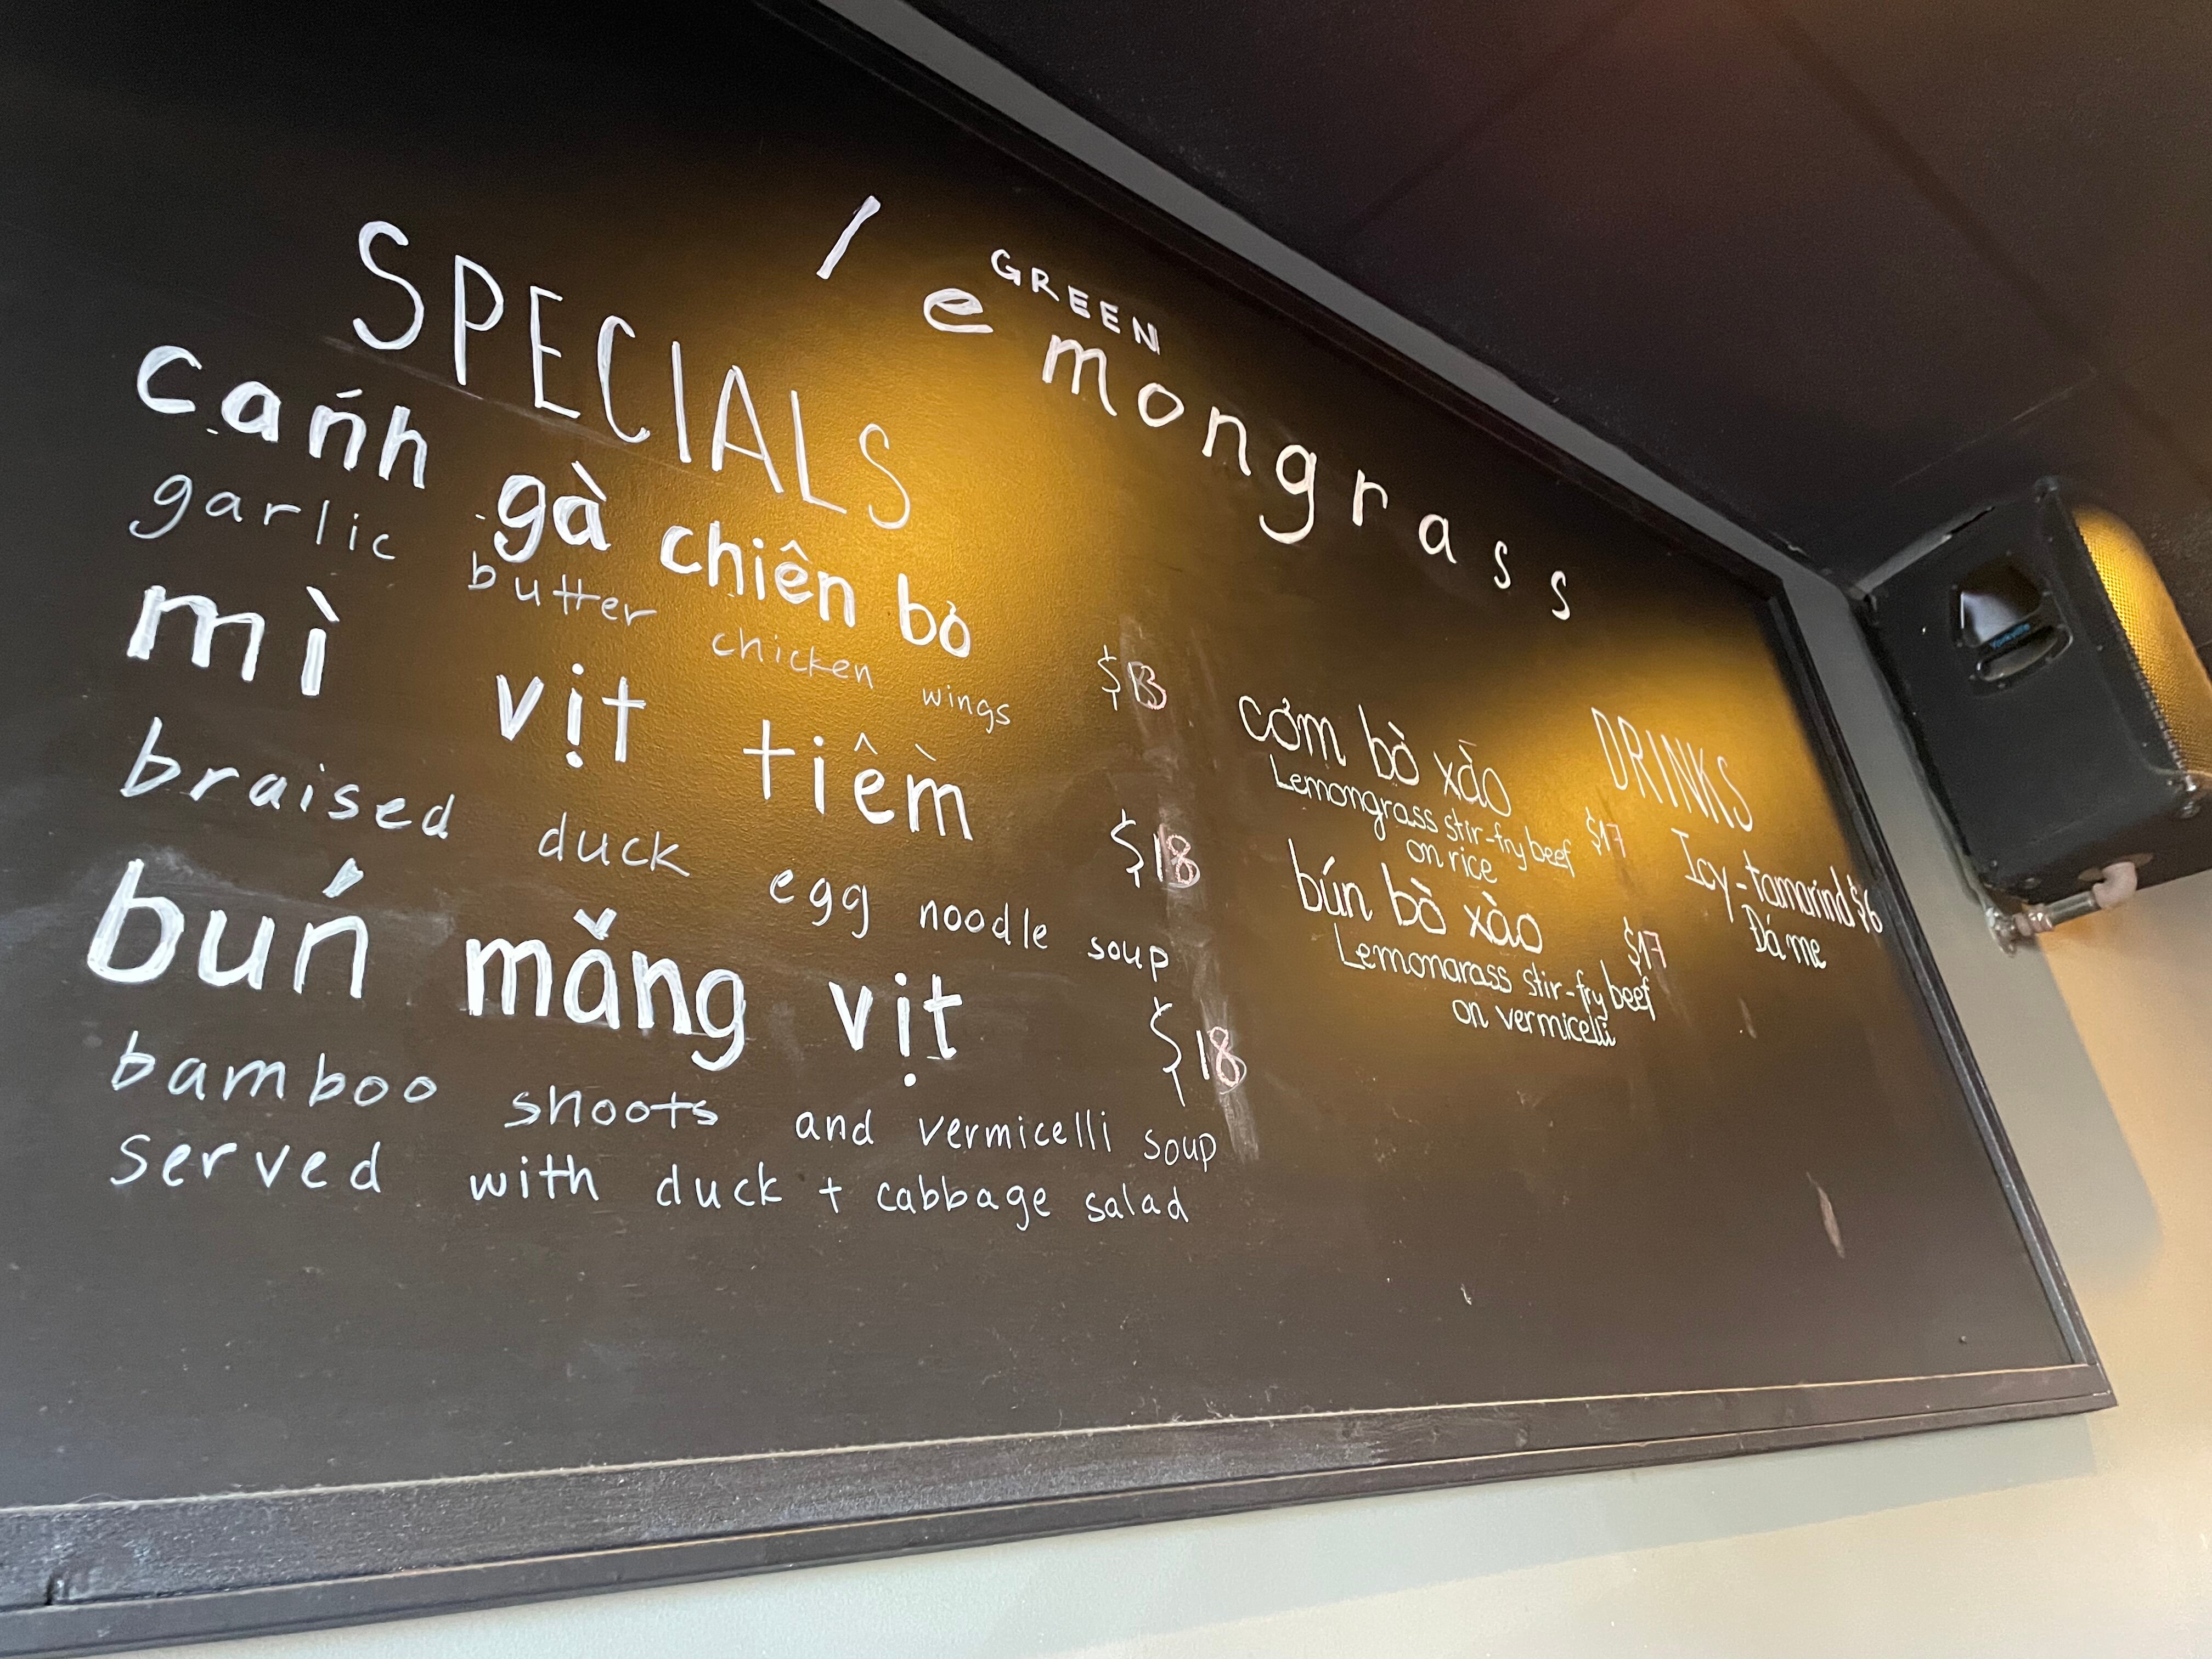 GREEN
lemongrass
SPECIALS
cánh gà chiên bơ
garlic butter chicken wings $13
mì vịt tiềm
braised duck egg noodle soup $18
bún măng vịt
bamboo shoots and vermicelli soup $18
served with duck + cabbage salad
cơm bò xào
Lemongrass stir-fry beef $17
on rice
bún bò xào
Lemongrass stir-fry beef $17
on vermicelli
DRINKS
Icy-tamarind $6
Đá me
Yorkville